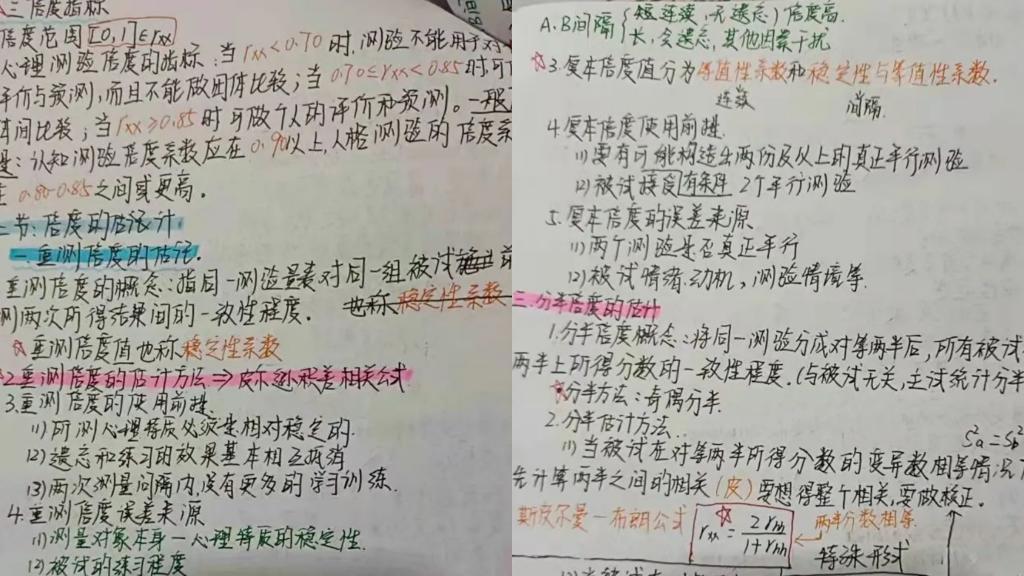 三 信度指标
信度范围 [0,1] ∈ rxx
心理测验信度的指标:当 rxx<0.70 时,测验不能用于对
评价与预测,而且不能做团体比较;当 0.70≤rxx<0.85 时,可
体间比较;当 rxx≥0.85 时可做个人的评价和预测。一般
:认知测验信度系数应在0.90以上,人格测验的信度系
0.80-0.85之间或更高。
节:信度的估计
一.重测信度的估计.
重测信度的概念:指同一测验量表对同一组被试施
测两次所得结果间的一致性程度. 也称稳定性系数
☆重测信度值也称稳定性系数
2.重测信度的估计方法⇒皮尔逊积差相关公式
3.重测信度的使用前提.
(1)所测心理特质必须是相对稳定的.
(2)遗忘和练习的效果基本相互抵消
(3)两次测量间隔内,没有更多的学习训练.
4.重测信度误差来源
(1)测量对象本身一心理特质的稳定性.
(2)被试的练习程度
A.B间隔{短,连续,无遗忘,信度高.
长,会遗忘,其他因素干扰
☆3.复本信度值分为等值性系数和稳定性与等值性系数.
连续 间隔.
4.复本信度使用前提.
(1)要有可能构造出两份及以上的真正平行测验
(2)被试接受有条件2个平行测验
5.复本信度的误差来源
(1)两个测验是否真正平行
(2)被试情绪.动机,测验情境等.
三.分半信度的估计
1.分半信度概念:将同一测验分成对等两半后,所有被试
两半上所得分数的一致性程度.(与被试无关,主试统计分半
☆分半方法:奇偶分半.
2.分半估计方法.
Sa²=Sb²
(1)当被试在对等两半所得分数的变异数相等情况
先计算两半之间的相关(皮)要想得整个相关,要做校正.
斯皮尔曼一布朗公式 ☆ rxx=2rhh/1+rhh ←两半分数相等
特殊形式